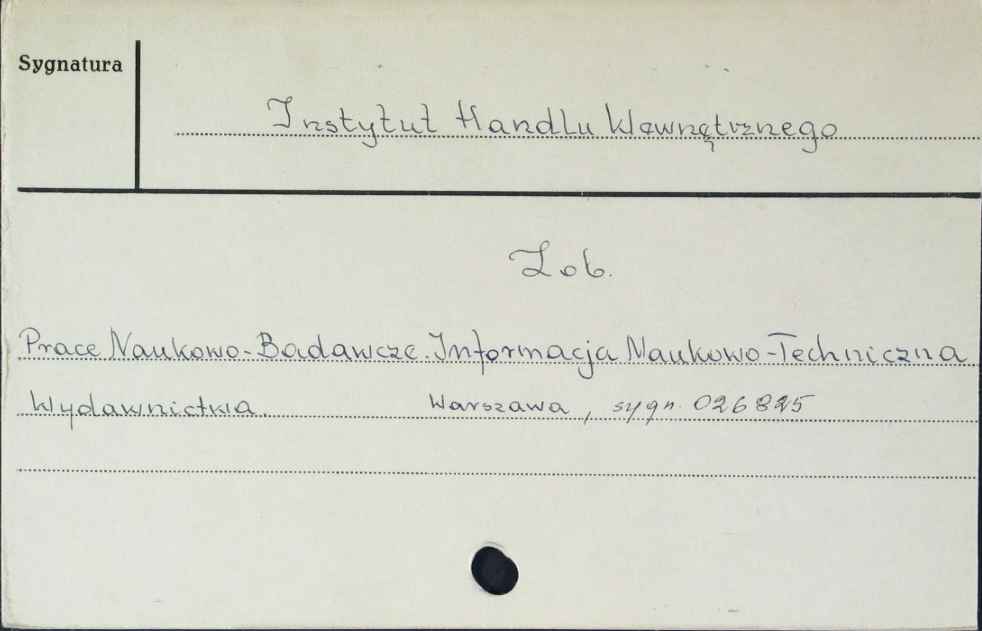 Sygnatura
Instytut Handlu Wewnętrznego
Zob.
Prace Naukowo-Badawcze. Informacja Naukowo-Techniczna
Wydawnictwa. Warszawa, sygn. 026825